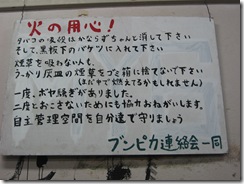 火の用心！
タバコの吸殻はかならずちゃんと消して下さい
そして、黒板下のバケツに入れて下さい
煙草を吸わない人も、
うっかり灰皿の煙草をゴミ箱に捨てないで下さい
(まだ中で燃えてるかもしれません)
一度、ボヤ騒ぎがありました。
二度とおこさないためにも協力おねがいします。
自主管理空間を自分達で守りましょう
ブンピカ連絡会一同